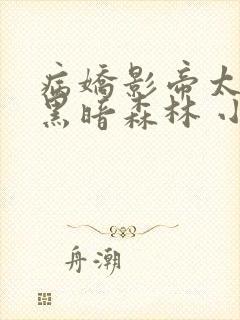 病嬌影帝太
黑暗森林 小
舟潮